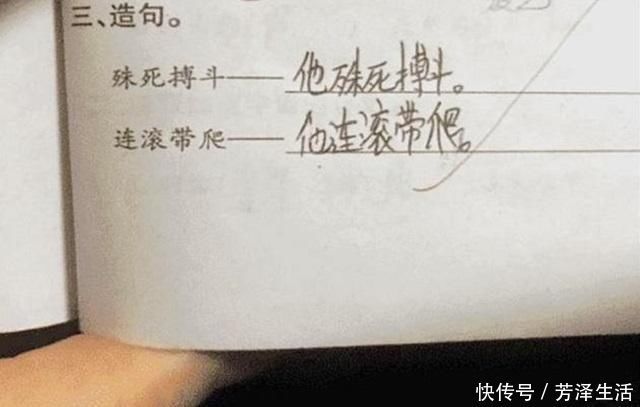 三、造句。
殊死搏斗——他殊死搏斗。
连滚带爬——他连滚带爬。
快传号/芳泽生活